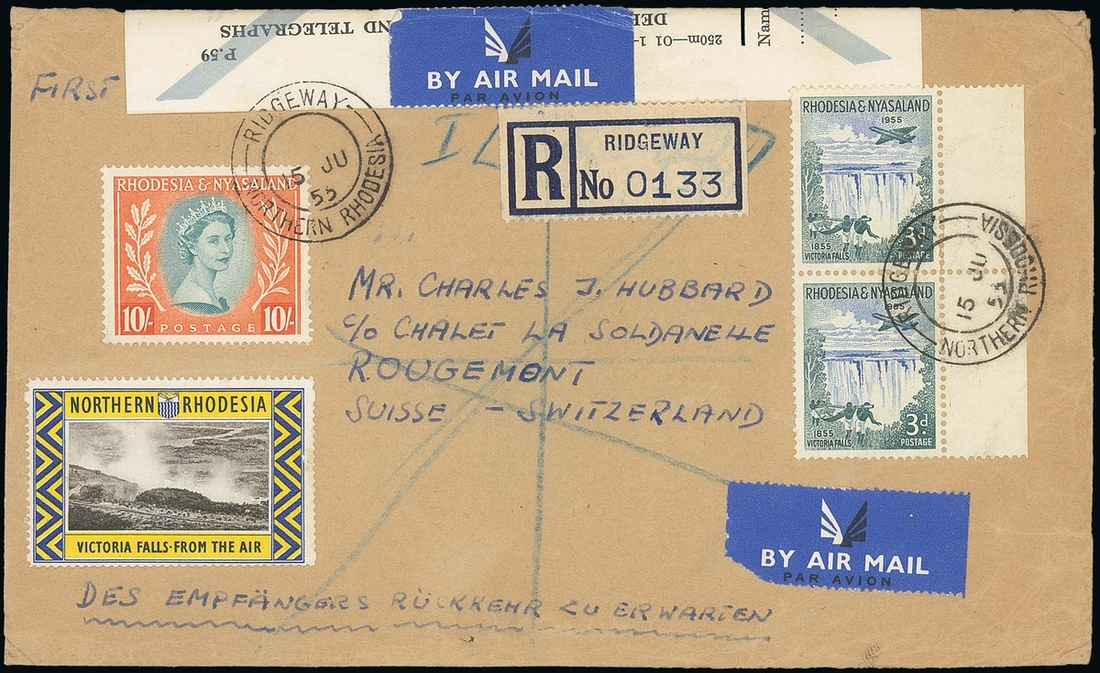 P.59
ND TELEGRAPHS
DE
250m—01 1-
Nam
FIRST
BY AIR MAIL
PAR AVION
RIDGEWAY
R No 0133
RIDGEWAY
15 JU
55
NORTHERN RHODESIA
RHODESIA & NYASALAND
10/- POSTAGE 10/-
RHODESIA & NYASALAND
1955
3d
1855
VICTORIA FALLS
POSTAGE
RIDGEWAY
15 JU
55
NORTHERN RHODESIA
RHODESIA & NYASALAND
1955
3d
1855
VICTORIA FALLS
POSTAGE
MR. CHARLES J. HUBBARD
c/o CHALET LA SOLDANELLE
ROUGEMONT
SUISSE - SWITZERLAND
NORTHERN RHODESIA
VICTORIA FALLS·FROM THE AIR
BY AIR MAIL
PAR AVION
DES EMPFÄNGERS RÜCKKEHR ZU ERWARTEN